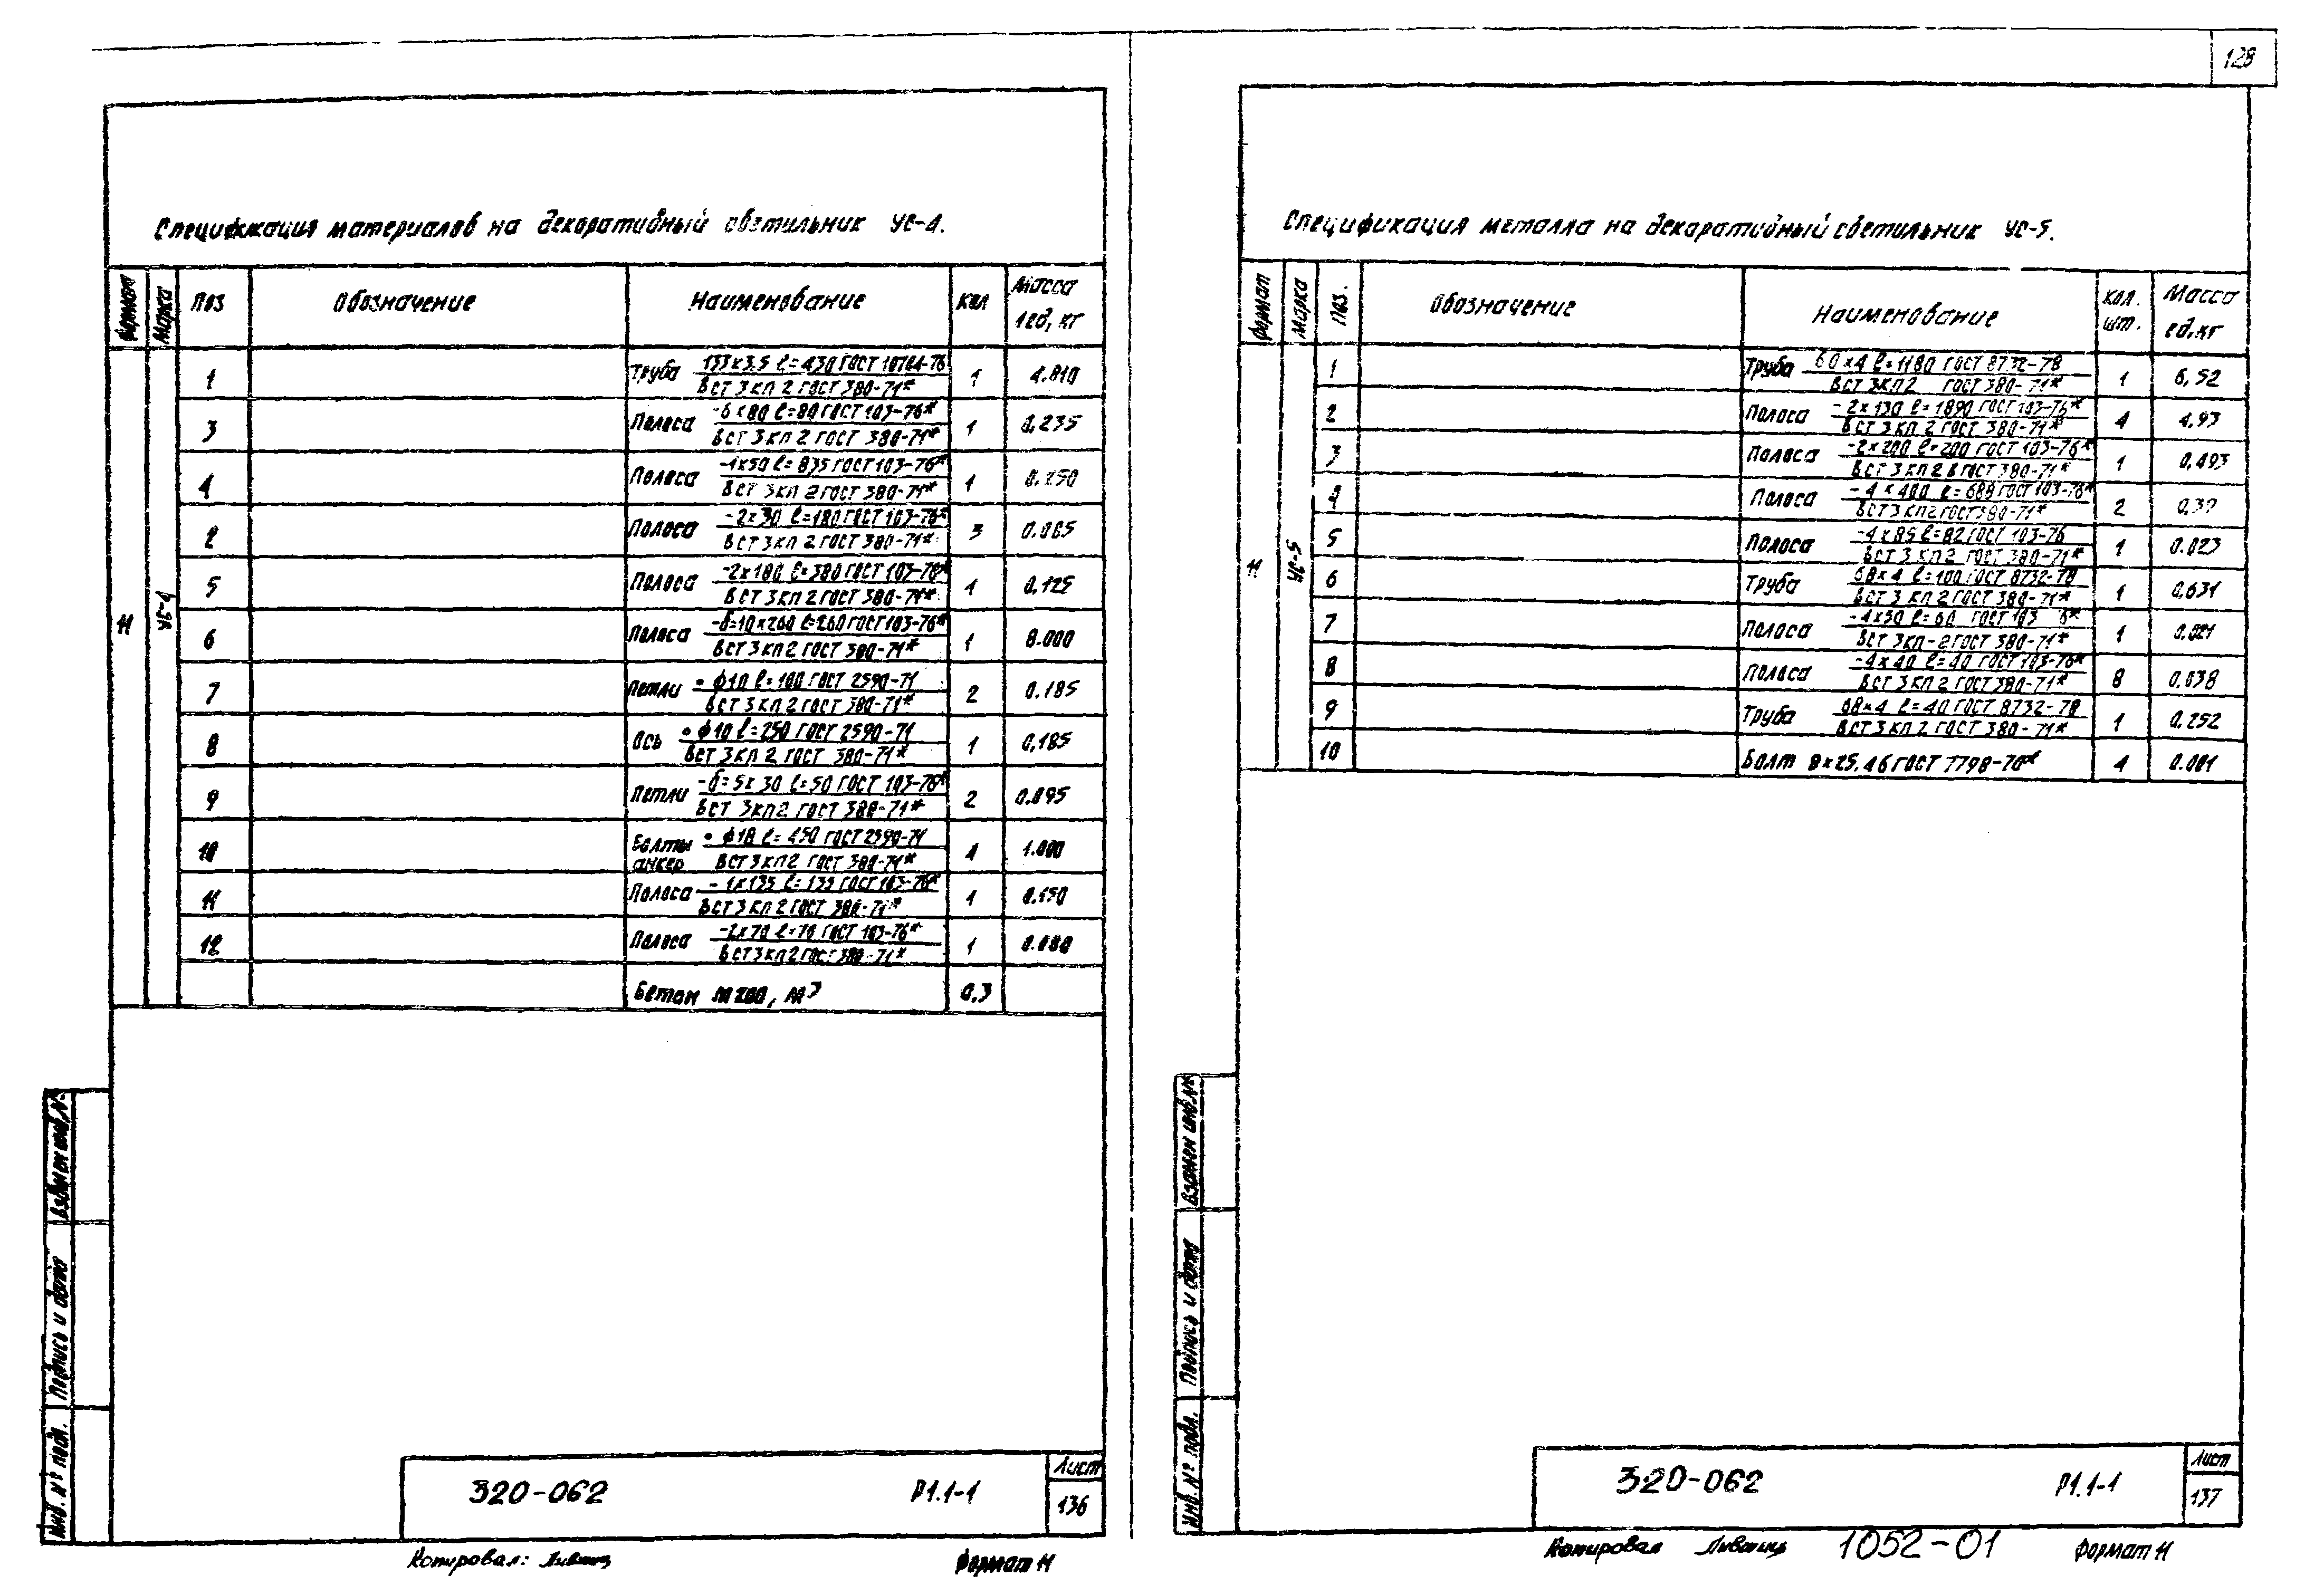 128
Спецификация материалов на декоративный светильник УС-4.
Формат Марка Поз Обозначение Наименование Кол Масса 1ед, кг
11 УС-4
1 Труба 133х3.5 ℓ=430 ГОСТ 10704-76 1 4.810
ВСт 3кп 2 ГОСТ 380-71*
3 Полоса -6х80 ℓ=80 ГОСТ 103-76* 1 0,235
ВСт 3кп 2 ГОСТ 380-71*
4 Полоса -1х50 ℓ=835 ГОСТ 103-76* 1 0.250
ВСт 3кп 2 ГОСТ 380-71*
2 Полоса -2х30 ℓ=180 ГОСТ 103-76* 3 0.085
ВСт 3кп 2 ГОСТ 380-71*
5 Полоса -2х180 ℓ=380 ГОСТ 103-76* 1 0,125
ВСт 3кп 2 ГОСТ 380-71*
6 Полоса -δ=10х260 ℓ=260 ГОСТ 103-76* 1 8.000
ВСт 3кп 2 ГОСТ 380-71*
7 Петли • ф10 ℓ=100 ГОСТ 2590-71 2 0.185
ВСт 3кп 2 ГОСТ 380-71*
8 Ось • ф10 ℓ=250 ГОСТ 2590-71 1 0,185
ВСт 3кп 2 ГОСТ 380-71*
9 Петли -δ=5х30 ℓ=50 ГОСТ 103-76* 2 0.095
ВСт 3кп2 ГОСТ 380-71*
10 Болты анкер • ф18 ℓ=450 ГОСТ 2590-71 4 1.000
ВСт 3кп2 ГОСТ 380-71*
11 Полоса -1х135 ℓ=135 ГОСТ 103-76* 1 0.150
ВСт 3кп 2 ГОСТ 380-71*
12 Полоса -2х70 ℓ=70 ГОСТ 103-76* 1 0.080
ВСт 3кп 2 ГОСТ 380-71*
Бетон М200, м³ 0,3
Взамен инв.№
Подпись и дата
Инв. № подл.
320-062 Р1.1-1 Лист
136
Копировал: Лившиц Формат 11
Спецификация металла на декоративный светильник УС-5.
Формат Марка Поз. Обозначение Наименование Кол. шт. Масса ед.кг
11 УС-5
1 Труба 60х4 ℓ=1180 ГОСТ 8732-78 1 6,52
ВСт 3кп2 ГОСТ 380-71*
2 Полоса -2х130 ℓ=1890 ГОСТ 103-76* 4 4,93
ВСт 3кп 2 ГОСТ 380-71*
3 Полоса -2х200 ℓ=200 ГОСТ 103-76* 1 0,493
ВСт 3кп 2 в ГОСТ 380-71*
4 Полоса -4х400 ℓ=688 ГОСТ 103-76* 2 0,39
ВСт 3кп2 ГОСТ 380-71*
5 Полоса -4х85 ℓ=82 ГОСТ 103-76 1 0.023
ВСт 3кп2 ГОСТ 380-71*
6 Труба 68х4 ℓ=100 ГОСТ 8732-78 1 0,631
ВСт 3кп 2 ГОСТ 380-71*
7 Полоса -4х50 ℓ=60 ГОСТ 103 6* 1 0.021
ВСт 3кп-2 ГОСТ 380-71*
8 Полоса -4х40 ℓ=40 ГОСТ 103-76* 8 0,038
ВСт 3кп 2 ГОСТ 380-71*
9 Труба 68х4 ℓ=40 ГОСТ 8732-78 1 0.252
ВСт 3кп 2 ГОСТ 380-71*
10 Болт 8х25.46 ГОСТ 7798-70* 4 0.001
Взамен инв.№
Подпись и дата
Инв. № подл.
320-062 Р1.1-1 Лист
137
Копировал Лившиц 1052-01 Формат 11